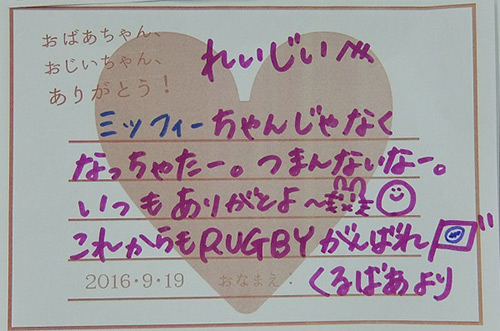 おばあちゃん、
おじいちゃん、
ありがとう！
れいじいへ
ミッフィーちゃんじゃなく
なっちゃたー。つまんないなー。
いつもありがとよ～
これからもRUGBYがんばれ
2016・9・19 おなまえ：
くるばあより